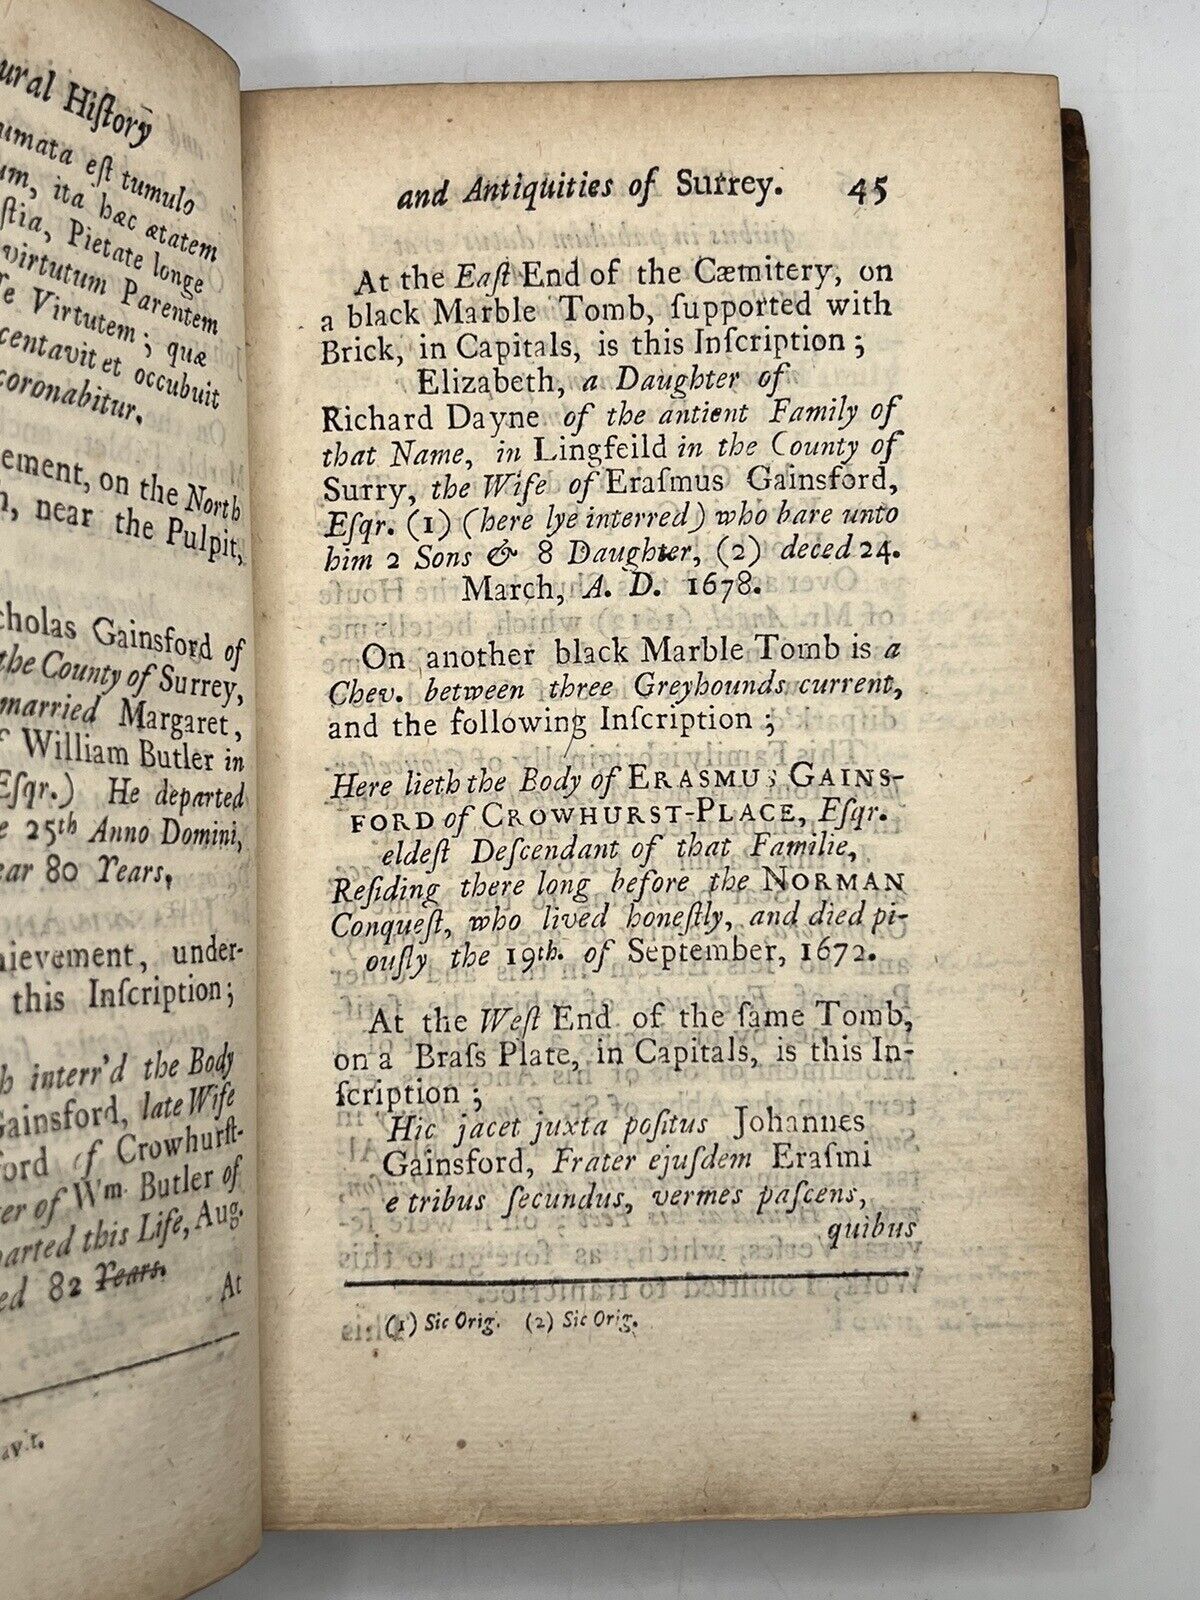 ural Hiſtory
umata eſt tumulo
um, ita hæc ætatem
ſtia, Pietate longe
virtutum Parentem
ſe Virtutem; quæ
centavit et occubuit
coronabitur.
ement, on the North
near the Pulpit,
cholas Gainsford of
the County of Surrey,
married Margaret,
William Butler in
Eſqr.) He departed
25th Anno Domini,
ear 80 Years.
ievement, under-
this Inſcription;
h interr'd the Body
Gainsford, late Wife
ford of Crowhurſt-
er of Wm. Butler of
arted this Life, Aug.
ed 82 Years.
At
and Antiquities of Surrey. 45
At the Eaſt End of the Cæmitery, on
a black Marble Tomb, ſupported with
Brick, in Capitals, is this Inſcription;
Elizabeth, a Daughter of
Richard Dayne of the antient Family of
that Name, in Lingfeild in the County of
Surry, the Wife of Eraſmus Gainsford,
Eſqr. (1) (here lye interred) who bare unto
him 2 Sons & 8 Daughter, (2) deced 24.
March, A. D. 1678.
On another black Marble Tomb is a
Chev. between three Greyhounds current,
and the following Inſcription;
Here lieth the Body of ERASMUS GAINS-
FORD of CROWHURST-PLACE, Eſqr.
eldeſt Deſcendant of that Familie,
Reſiding there long before the NORMAN
Conqueſt, who lived honeſtly, and died pi-
ouſly the 19th. of September, 1672.
At the Weſt End of the ſame Tomb,
on a Braſs Plate, in Capitals, is this In-
ſcription;
Hic jacet juxta poſitus Johannes
Gainsford, Frater ejuſdem Eraſmi
e tribus ſecundus, vermes paſcens,
quibus
(1) Sic Orig. (2) Sic Orig.